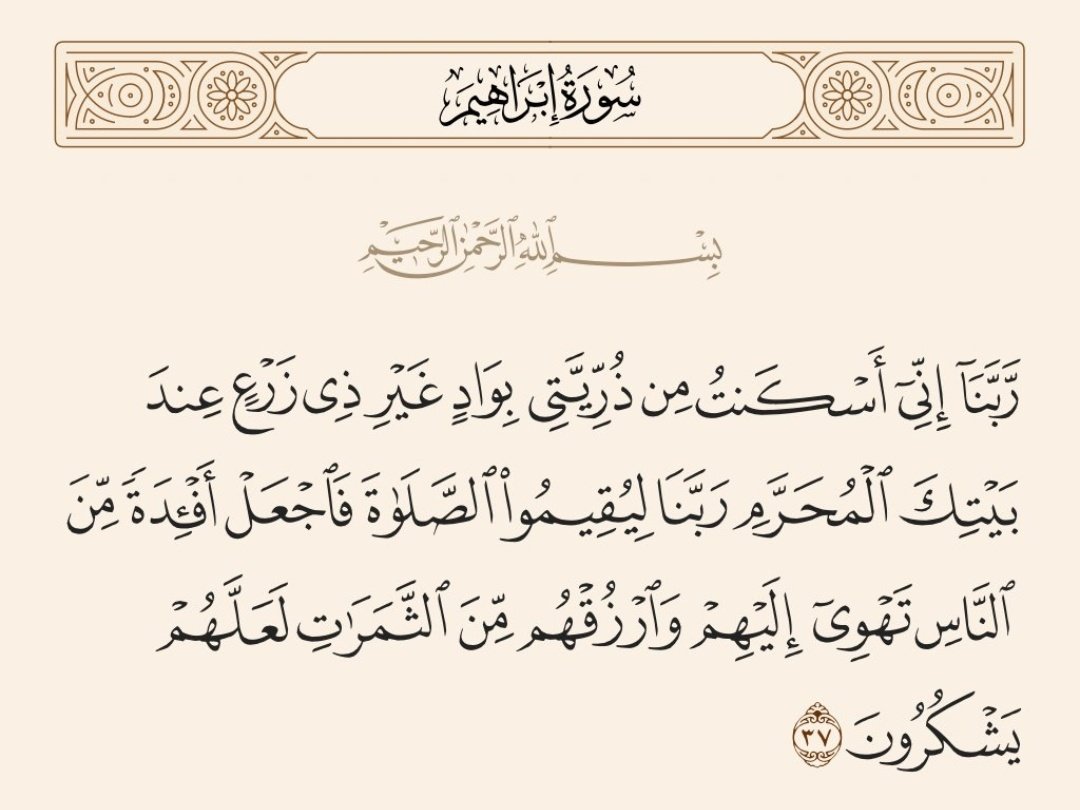 سُورَةُ إِبْرَاهِيمَ
بِسْمِ ٱللَّهِ ٱلرَّحْمَٰنِ ٱلرَّحِيمِ
رَّبَّنَآ إِنِّىٓ أَسْكَنتُ مِن ذُرِّيَّتِى بِوَادٍ غَيْرِ ذِى زَرْعٍ عِندَ
بَيْتِكَ ٱلْمُحَرَّمِ رَبَّنَا لِيُقِيمُوا۟ ٱلصَّلَوٰةَ فَٱجْعَلْ أَفْـِٔدَةً مِّنَ
ٱلنَّاسِ تَهْوِىٓ إِلَيْهِمْ وَٱرْزُقْهُم مِّنَ ٱلثَّمَرَٰتِ لَعَلَّهُمْ
يَشْكُرُونَ ٣٧